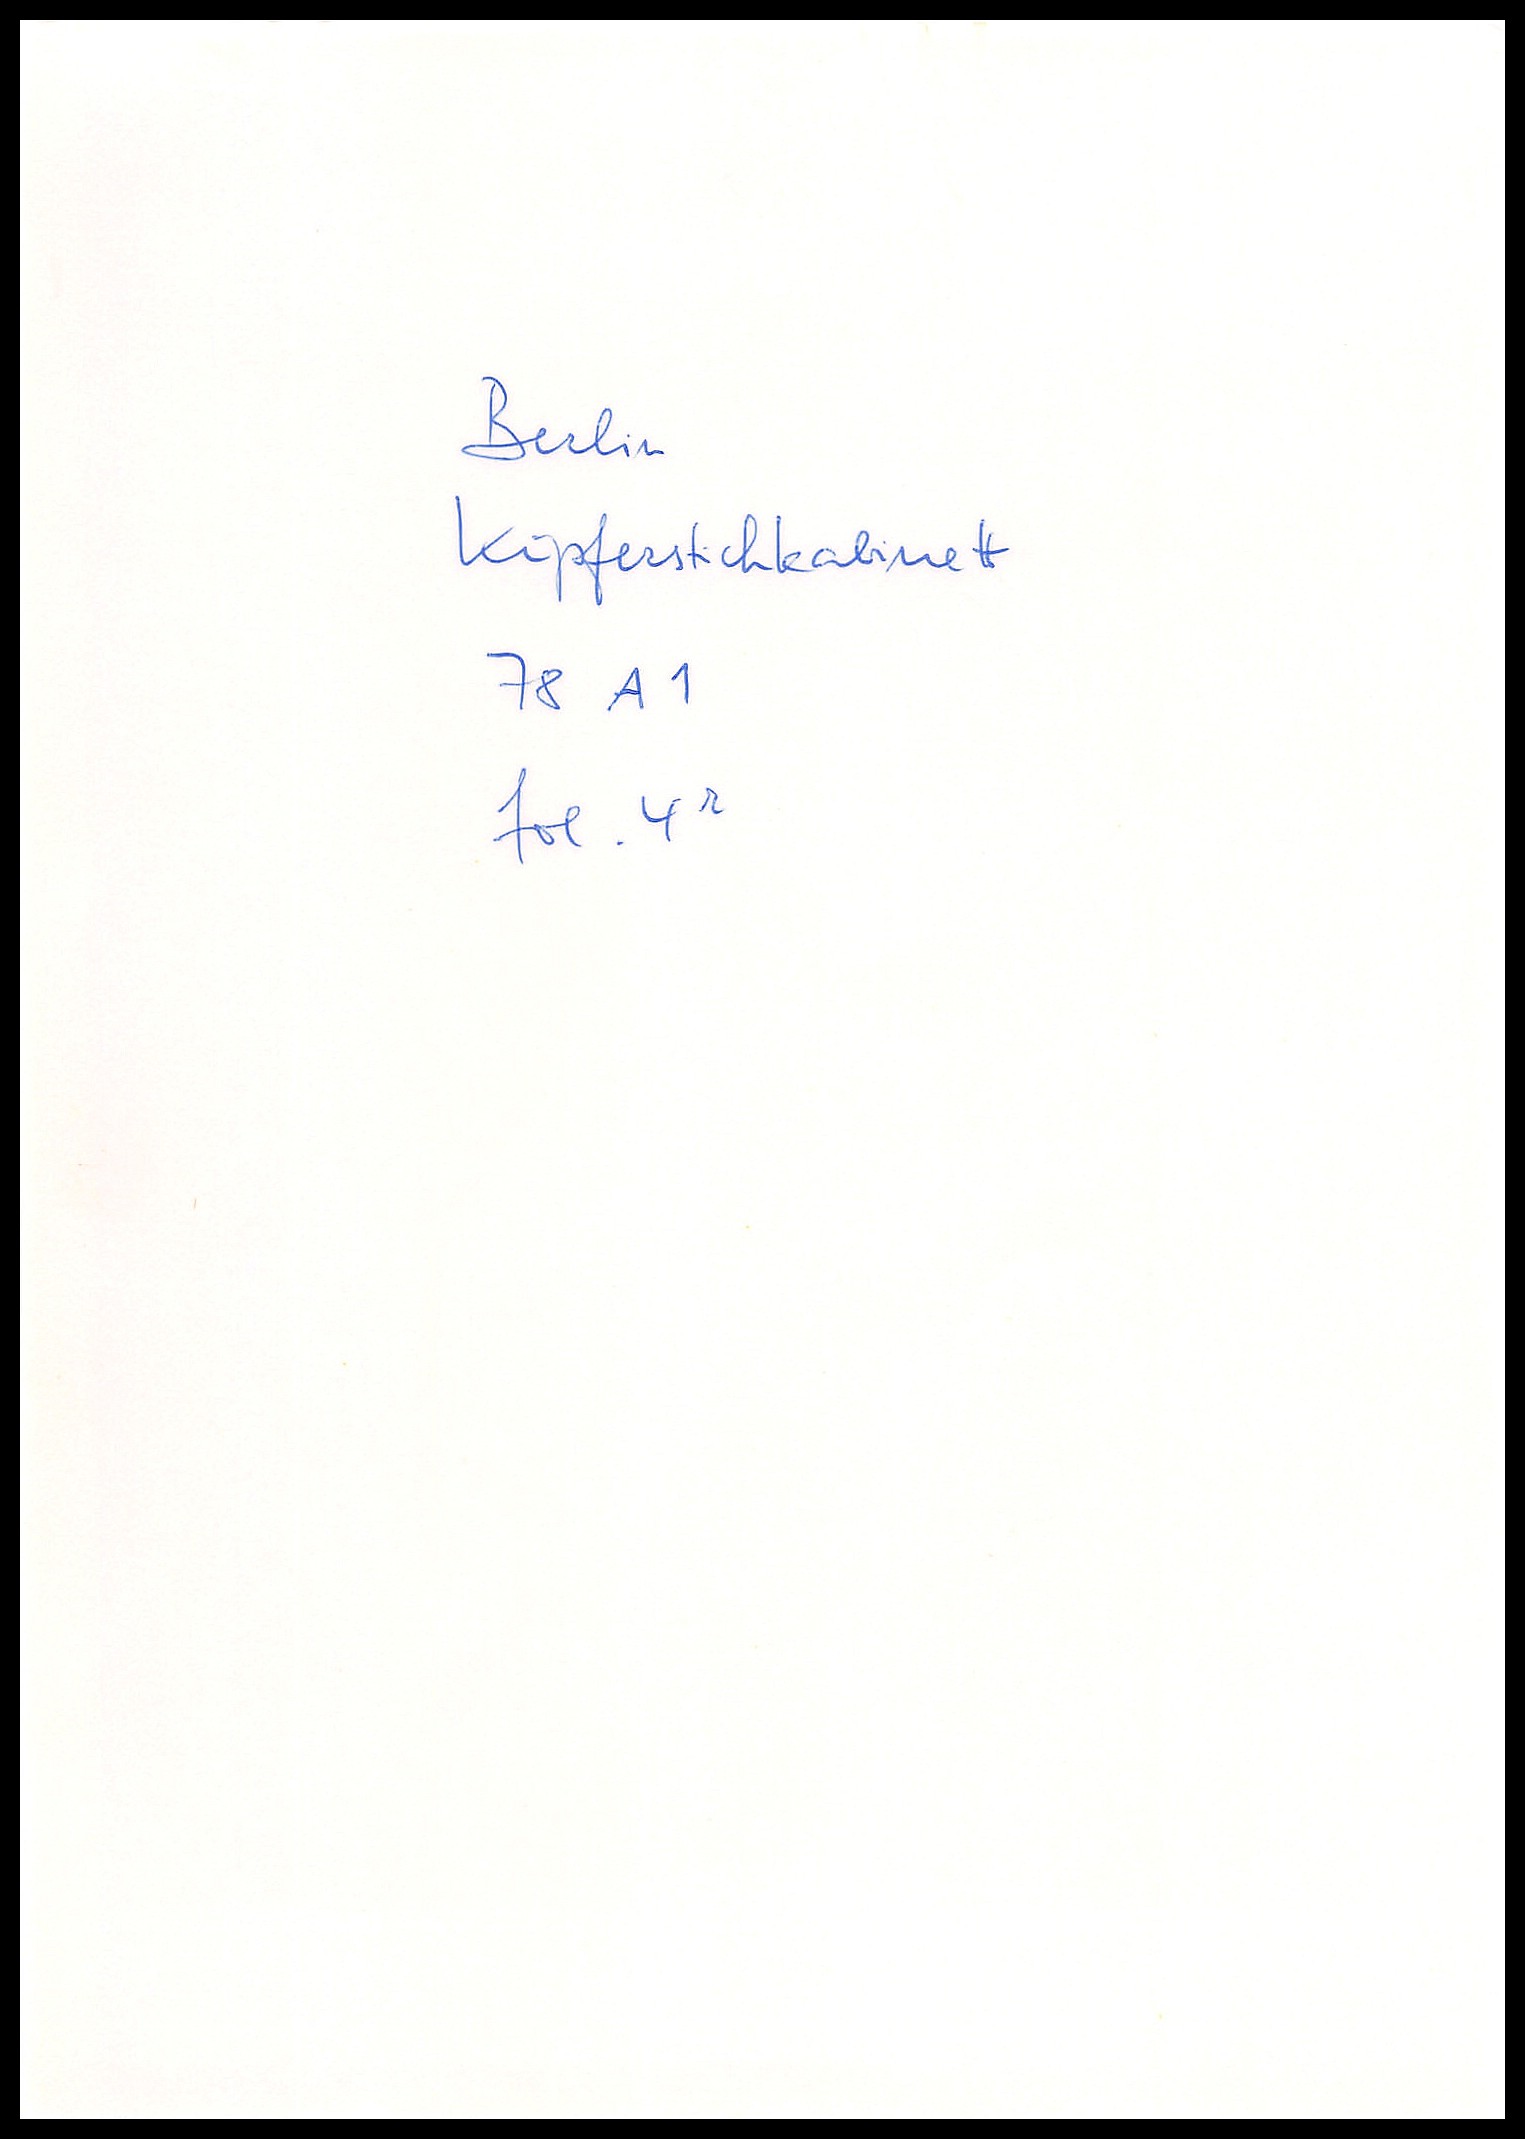 Berlin
Kupferstichkabinett
78 A 1
fol. 4r